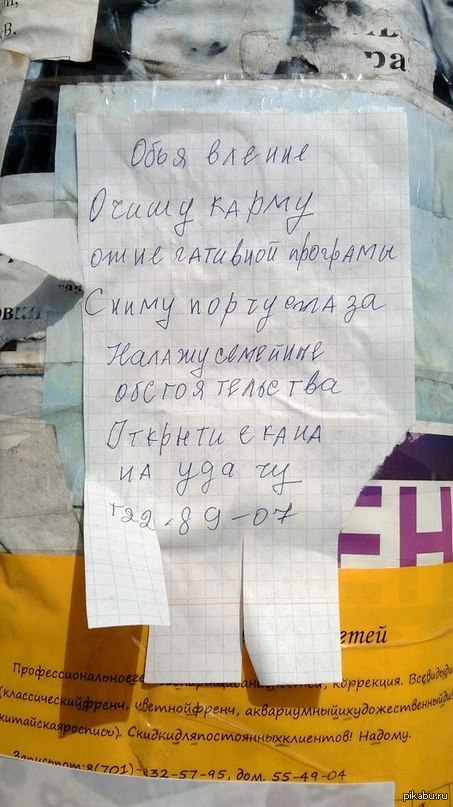 ра
Объя вление
Очищу карму
отне гативной програмы
Сниму порчу сглаза
Налажу семейние
обстоя тельства
Открыти е кана
на уда чу
т22-89-07
ЕН
етей
коррекция.
(классическийфренч, цветнойфренч, аквариумныйхудожественныйди
китайскаяроспись). Скидкидляпостоянныхклиентов! Надому.
Запистот:8(701)-232-57-95, дом. 55-49-04
pikabu.ru